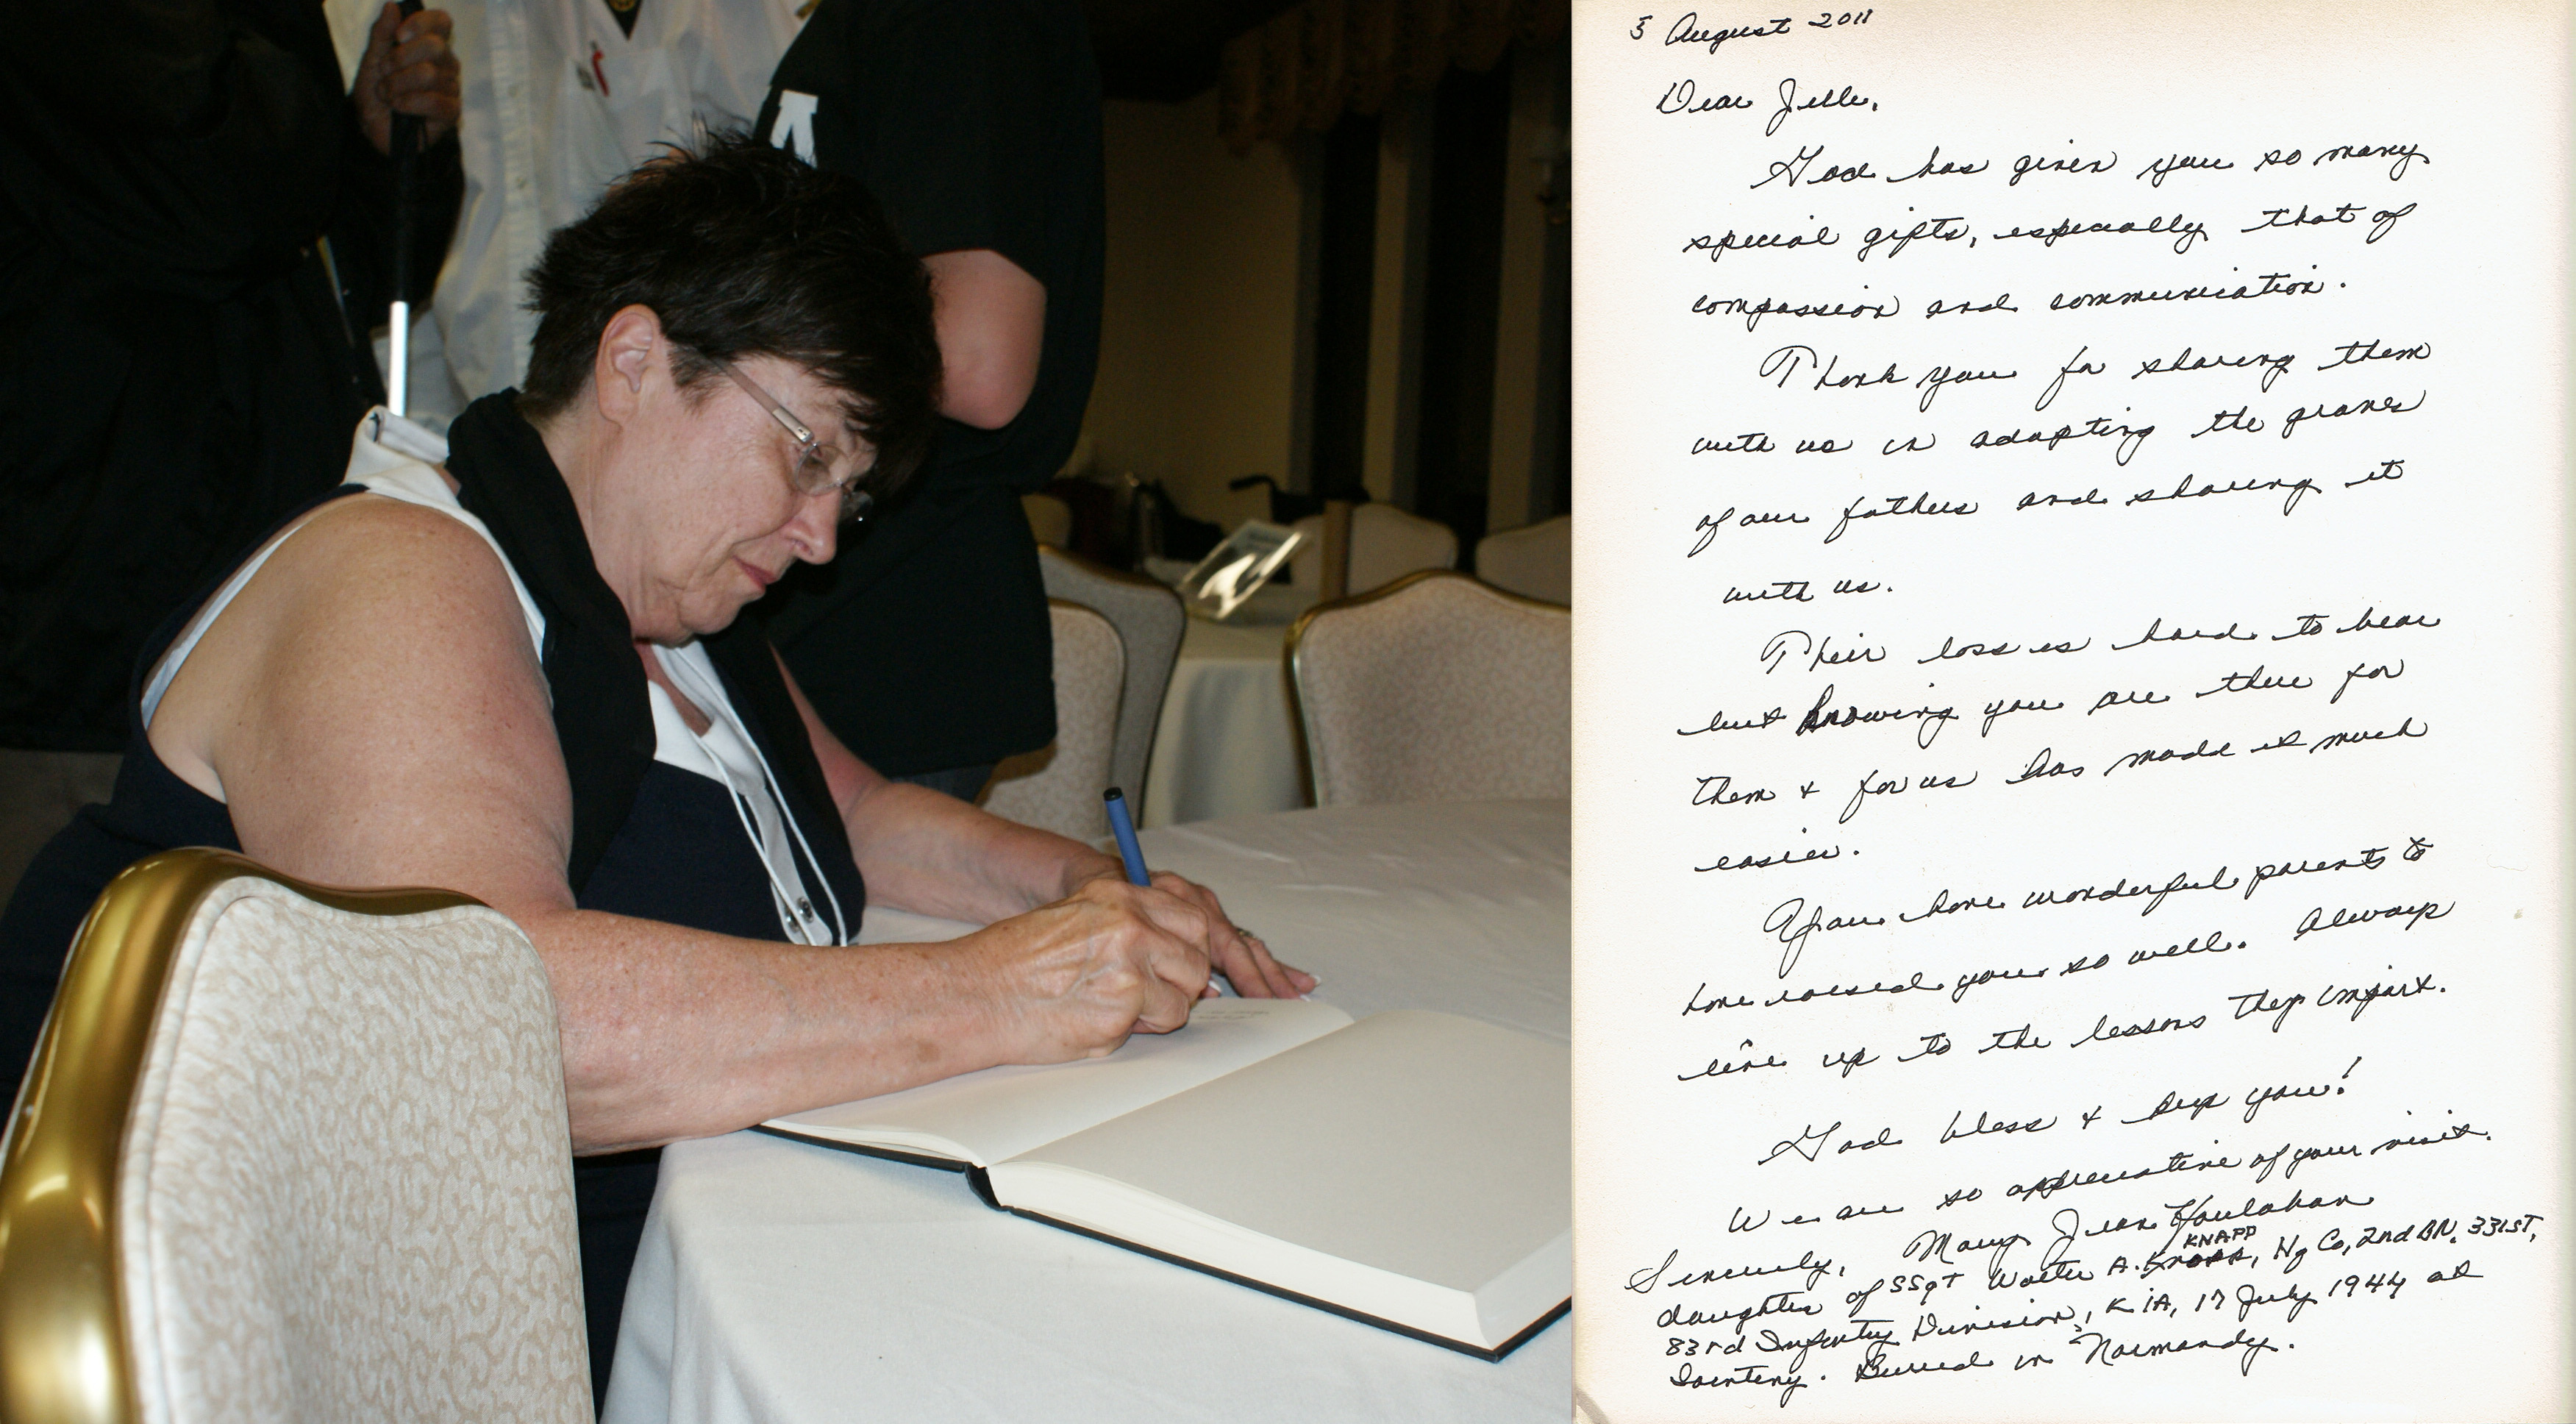 5 August 2011
Dear Jelle,
God has given you so many
special gifts, especially that of
compassion and communication.
Thank you for sharing them
with us in adopting the graves
of our fathers and sharing it
with us.
Their loss is hard to bear
but knowing you are there for
them & for us has made it much
easier.
You have wonderful parents to
have raised you so well. Always
live up to the lessons they impart.
God bless & keep you!
We are so appreciative of your visit.
Sincerely, Mary Jean Houlahan
KNAPP
daughter of SSgt Walter A. Knapp, Hq Co, 2nd BN, 331ST,
83rd Infantry Division, KIA, 17 July 1944 at
Sainteny. Buried in Normandy.